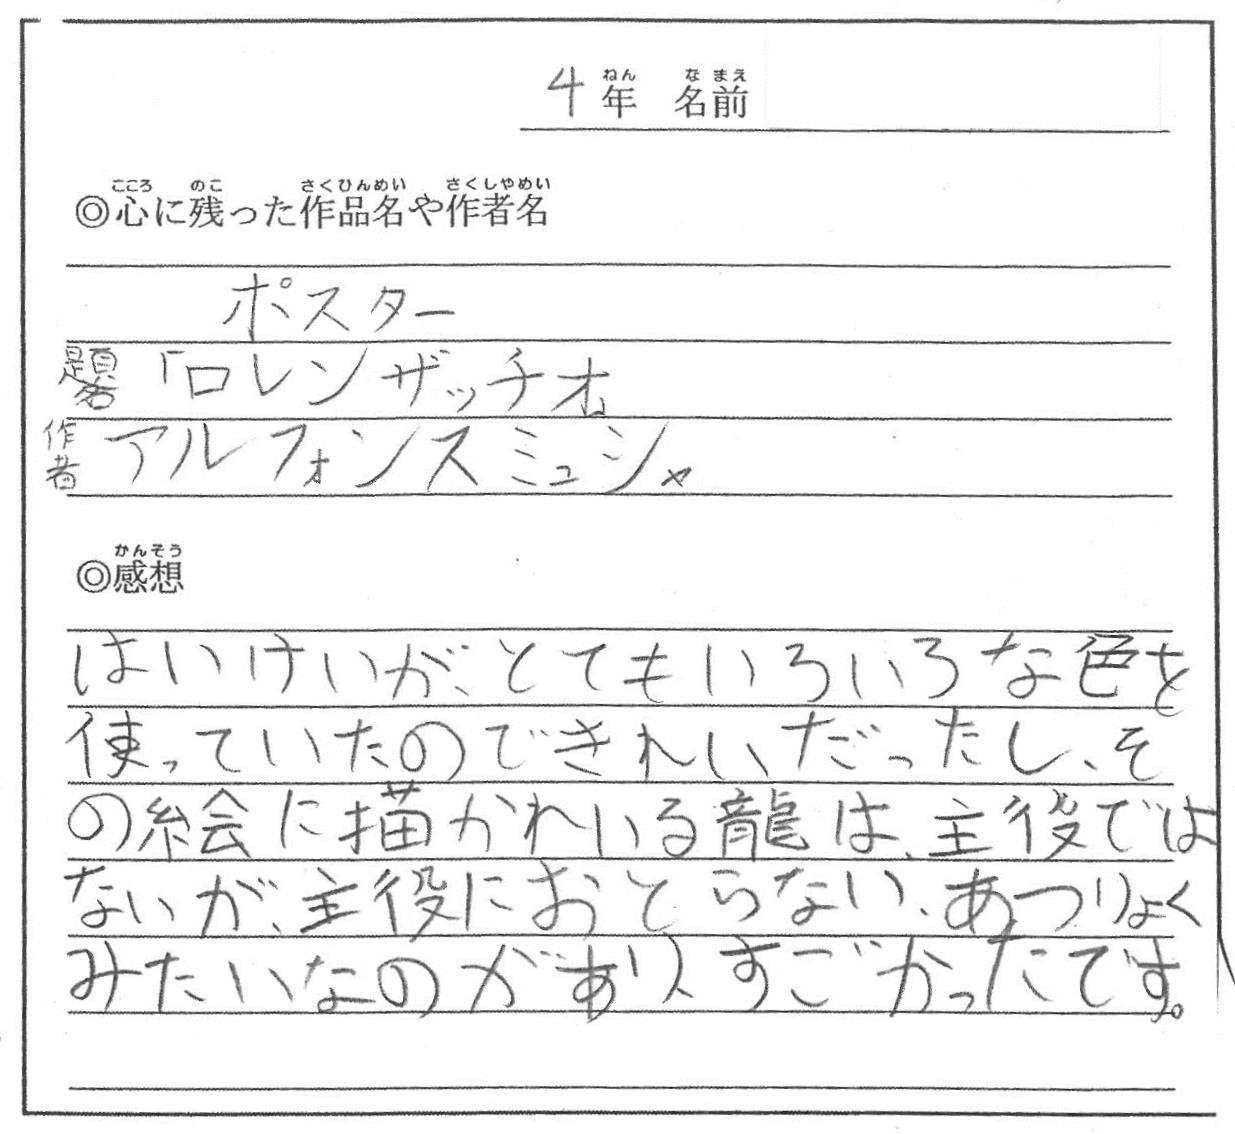 4年 名前
ねん な まえ
◎心に残った作品名や作者名
こころ のこ さくひんめい さくしゃめい
ポスター
題名「ロレンザッチオ」
作者 アルフォンスミュシャ
◎感想
かんそう
はいけいが、とてもいろいろな色を
使っていたのできれいだったし、そ
の絵に描かれいる龍は、主役では
ないが、主役におとらない、あつりょく
みたいなのがあり、すごかったです。